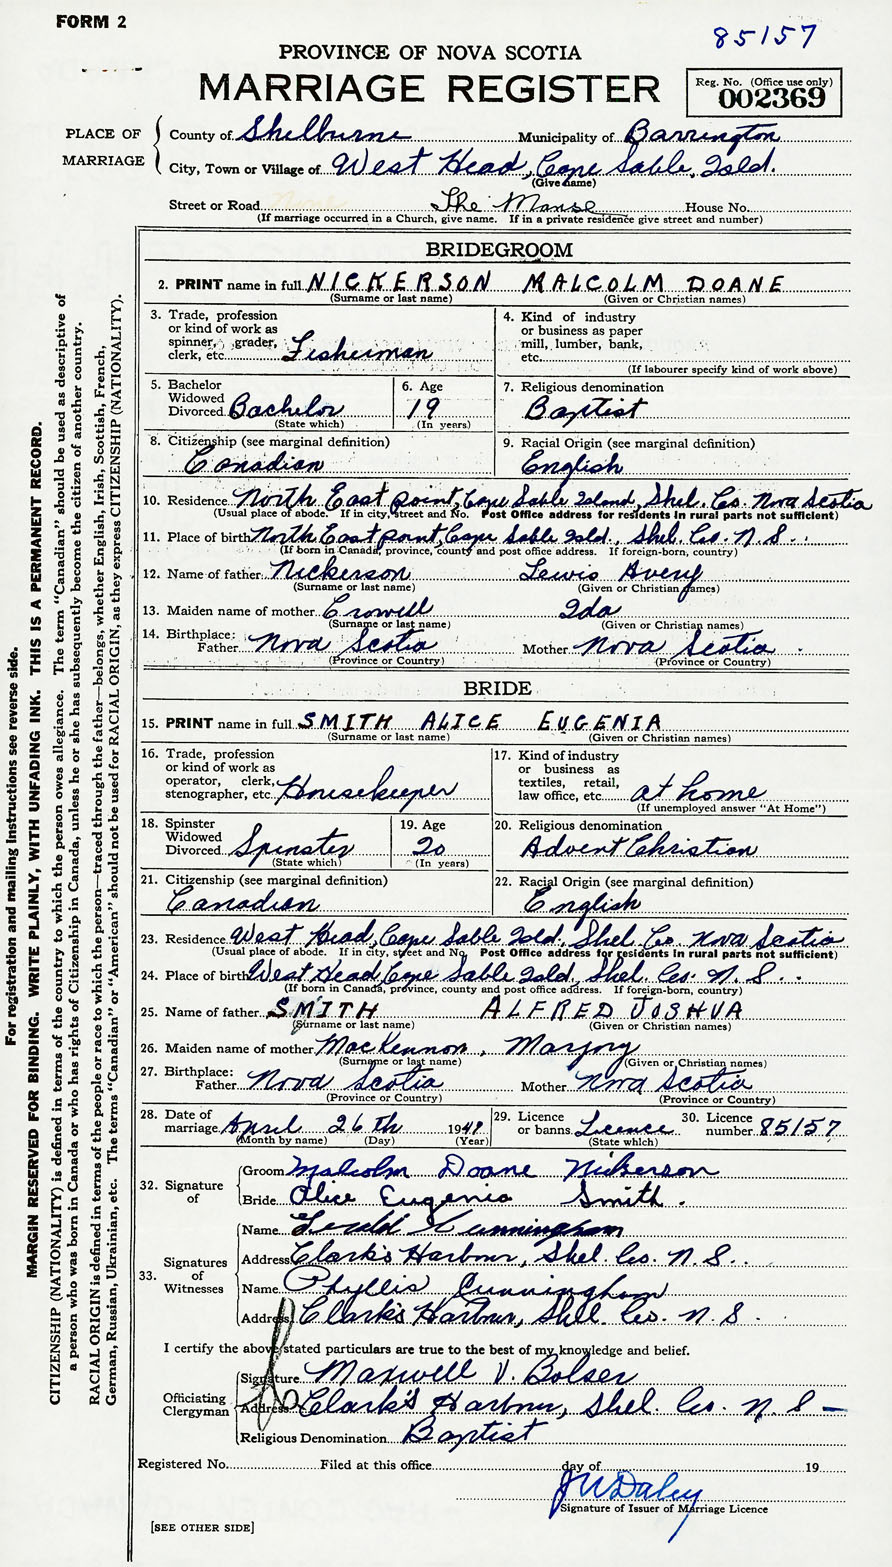 FORM 2
85157
PROVINCE OF NOVA SCOTIA
MARRIAGE REGISTER
Reg. No. (Office use only)
002369
PLACE OF MARRIAGE
County of Shelburne Municipality of Barrington
City, Town or Village of West Head, Cape Sable, Isld.
(Give name)
Street or Road The Manse House No.
(If marriage occurred in a Church, give name. If in a private residence give street and number)
BRIDEGROOM
2. PRINT name in full NICKERSON MALCOLM DOANE
(Surname or last name) (Given or Christian names)
3. Trade, profession
or kind of work as
spinner, grader,
clerk, etc. Fisherman
4. Kind of industry
or business as paper
mill, lumber, bank,
etc.
(If labourer specify kind of work above)
5. Bachelor
Widowed
Divorced Bachelor
(State which)
6. Age
19
(In years)
7. Religious denomination
Baptist
8. Citizenship (see marginal definition)
Canadian
9. Racial Origin (see marginal definition)
English
10. Residence North East point, Cape Sable Island, Shel. Co. Nova Scotia
(Usual place of abode. If in city, street and No. Post Office address for residents in rural parts not sufficient)
11. Place of birth North East point, Cape Sable Isld., Shel. Co. N. S.
(If born in Canada, province, county and post office address. If foreign-born, country)
12. Name of father Nickerson Lewis Avery
(Surname or last name) (Given or Christian names)
13. Maiden name of mother Crowell Ida
(Surname or last name) (Given or Christian names)
14. Birthplace:
Father Nova Scotia Mother Nova Scotia
(Province or Country) (Province or Country)
BRIDE
15. PRINT name in full SMITH ALICE EUGENIA
(Surname or last name) (Given or Christian names)
16. Trade, profession
or kind of work as
operator, clerk,
stenographer, etc. Housekeeper
17. Kind of industry
or business as
textiles, retail,
law office, etc. at home
(If unemployed answer "At Home")
18. Spinster
Widowed
Divorced Spinster
(State which)
19. Age
20
(In years)
20. Religious denomination
Advent Christian
21. Citizenship (see marginal definition)
Canadian
22. Racial Origin (see marginal definition)
English
23. Residence West Head, Cape Sable Isld, Shel. Co. Nova Scotia
(Usual place of abode. If in city, street and No. Post Office address for residents in rural parts not sufficient)
24. Place of birth West Head, Cape Sable Isld, Shel. Co. N. S.
(If born in Canada, province, county and post office address. If foreign-born, country)
25. Name of father SMITH ALFRED JOSHUA
(Surname or last name) (Given or Christian names)
26. Maiden name of mother MacKennon, Marjory
(Surname or last name) (Given or Christian names)
27. Birthplace:
Father Nova Scotia Mother Nova Scotia
(Province or Country) (Province or Country)
28. Date of
marriage April 26th 194
(Month by name) (Day) (Year)
29. Licence
or banns Licence
(State which)
30. Licence
number 85157
32. Signature of
Groom Malcolm Doane Nickerson
Bride Alice Eugenia Smith.
33. Signatures of Witnesses
Name Cunningham
Address Clark's Harbour, Shel. Co. N. S.
Name Phyllis Cunningham
Address Clark's Harbour, Shel. Co. N. S.
I certify the above stated particulars are true to the best of my knowledge and belief.
Officiating Clergyman
Signature Maxwell V. Bolser
Address Clark's Harbour, Shel. Co. N. S —
Religious Denomination Baptist
Registered No. Filed at this office day of 19
J W Daley
Signature of Issuer of Marriage Licence
[SEE OTHER SIDE]
For registration and mailing instructions see reverse side.
MARGIN RESERVED FOR BINDING. WRITE PLAINLY, WITH UNFADING INK. THIS IS A PERMANENT RECORD.
CITIZENSHIP (NATIONALITY) is defined in terms of the country to which the person owes allegiance. The term "Canadian" should be used as descriptive of
a person who was born in Canada or who has rights of Citizenship in Canada, unless he or she has subsequently become the citizen of another country.
RACIAL ORIGIN is defined in terms of the people or race to which the person—traced through the father—belongs, whether English, Irish, Scottish, French,
German, Russian, Ukrainian, etc. The terms "Canadian" or "American" should not be used for RACIAL ORIGIN, as they express CITIZENSHIP (NATIONALITY).